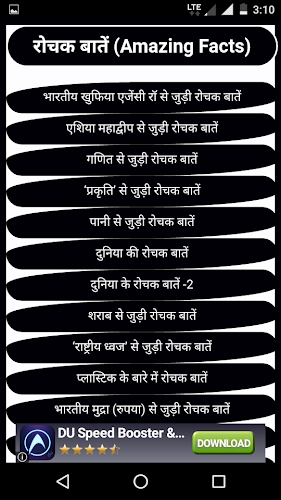 LTE 3:10
रोचक बातें (Amazing Facts)
भारतीय खुफिया एजेंसी रॉ से जुड़ी रोचक बातें
एशिया महाद्वीप से जुड़ी रोचक बातें
गणित से जुड़ी रोचक बातें
'प्रकृति' से जुड़ी रोचक बातें
पानी से जुड़ी रोचक बातें
दुनिया की रोचक बातें
दुनिया के रोचक बातें -2
शराब से जुड़ी रोचक बातें
'राष्ट्रीय ध्वज' से जुड़ी रोचक बातें
प्लास्टिक के बारे में रोचक बातें
भारतीय मुद्रा (रुपया) से जुड़ी रोचक बातें
DU Speed Booster &...
DOWNLOAD